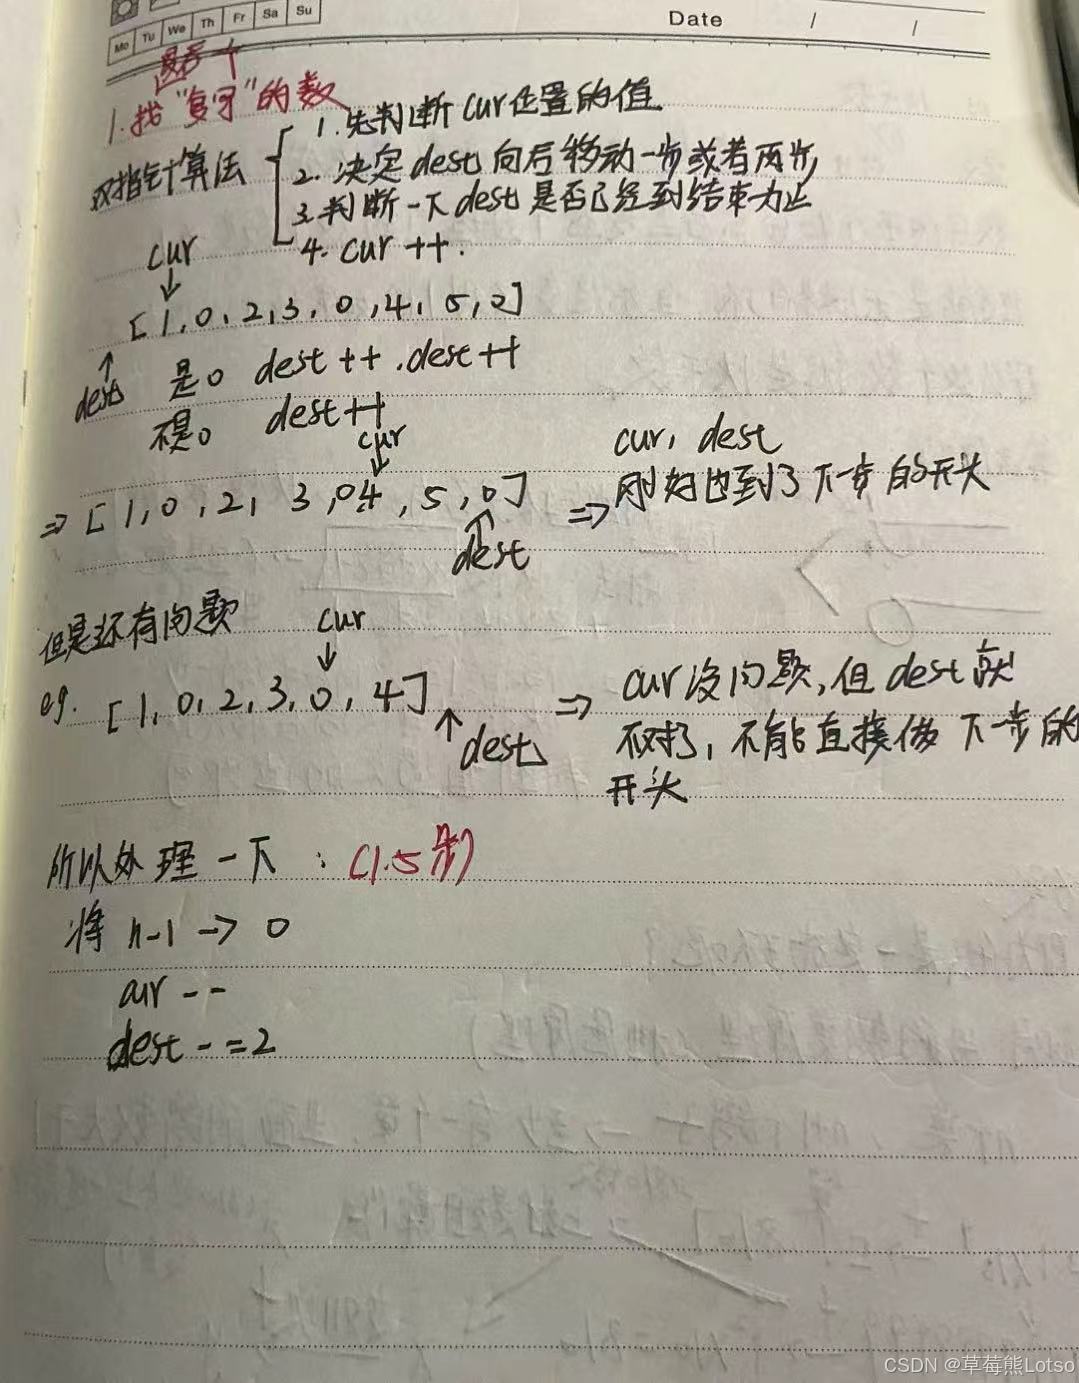 Mo Tu We Th Fr Sa Su
Date / /
最后一个
1. 找“复写”的数
双指针算法
1. 先判断 cur 位置的值
2. 决定 dest 向后移动一步或者两步
3. 判断一下 dest 是否已经到结束为止
4. cur ++.
cur
↓
[1,0,2,3,0,4,5,0]
↑
dest
是0 dest ++ .dest ++
不是0 dest ++
cur
↓
⇒ [1,0,2,3,0,4,5,0]
↑
dest
⇒ cur, dest
刚好也到了下一步的开头
但是还有问题
cur
↓
eg. [1,0,2,3,0,4]
↑
dest
⇒ cur没问题,但dest就
不对了,不能直接做下一步的
开头
所以处理一下: (1.5步)
将 n-1 → 0
cur --
dest -=2
CSDN @草莓熊Lotso